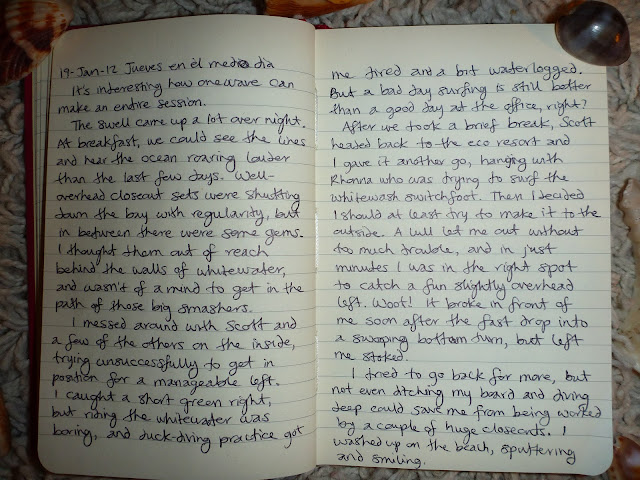 19-Jan-12 Jueves en él medio dia
It's interesting how one wave can
make an entire session.
The swell came up a lot over night.
At breakfast, we could see the lines
and hear the ocean roaring louder
than the last few days. Well-
overhead closeout sets were shutting
down the bay with regularity, but
in between there were some gems.
I thought them out of reach
behind the walls of whitewater,
and wasn't of a mind to get in the
path of those big smashers.
I messed around with Scott and
a few of the others on the inside,
trying unsuccessfully to get in
position for a manageable left.
I caught a short green right,
but riding the whitewater was
boring, and duck-diving practice got
me tired and a bit waterlogged.
But a bad day surfing is still better
than a good day at the office, right?
After we took a brief break, Scott
headed back to the eco resort and
I gave it another go, hanging with
Rhonna who was trying to surf the
whitewash switchfoot. Then I decided
I should at least try to make it to the
outside. A lull let me out without
too much trouble, and in just
minutes I was in the right spot
to catch a fun slightly overhead
left. Woot! It broke in front of
me soon after the fast drop into
a swooping bottom turn, but left
me stoked.
I tried to go back for more, but
not even ditching my board and diving
deep could save me from being worked
by a couple of huge closeouts. I
washed up on the beach, sputtering
and smiling.